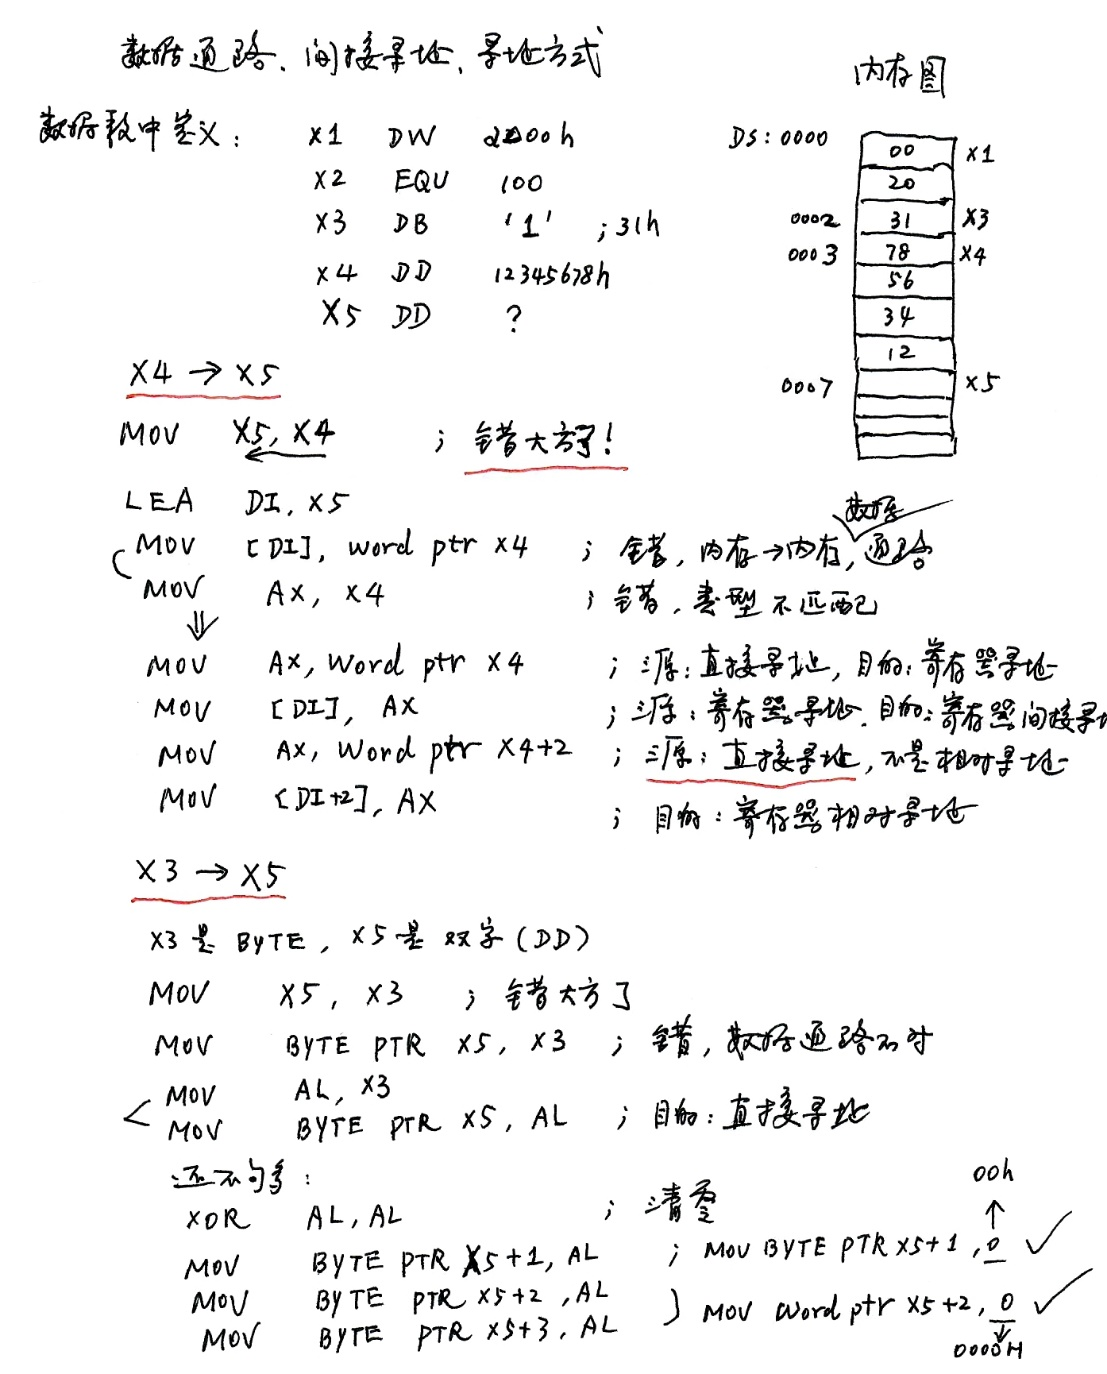 数据通路、间接寻址、寻址方式
内存图
数据段中定义: X1 DW 2000h
X2 EQU 100
X3 DB '1' ;31h
X4 DD 12345678h
X5 DD ?
DS:0000 00 X1
20
0002 31 X3
0003 78 X4
56
34
12
0007 X5
X4 → X5
MOV X5, X4 ; 错大方了!
LEA DI, X5
MOV [DI], word ptr X4 ; 错, 内存→内存, 数据通路
MOV AX, X4 ; 错, 类型不匹配
⇓
MOV AX, Word ptr X4 ; 源: 直接寻址, 目的: 寄存器寻址
MOV [DI], AX ; 源: 寄存器寻址, 目的: 寄存器间接寻
MOV AX, Word ptr X4+2 ; 源: 直接寻址, 不是相对寻址
MOV [DI+2], AX ; 目的: 寄存器相对寻址
X3 → X5
X3是 BYTE, X5是 双字(DD)
MOV X5, X3 ; 错大方了
MOV BYTE PTR X5, X3 ; 错, 数据通路不对
MOV AL, X3
MOV BYTE PTR X5, AL ; 目的: 直接寻址
还不够:
00h
↑
XOR AL, AL ; 清零
MOV BYTE PTR X5+1, AL ; MOV BYTE PTR X5+1, 0 ✓
MOV BYTE PTR X5+2, AL
MOV BYTE PTR X5+3, AL } MOV Word ptr X5+2, 0 ✓
↓
0000H